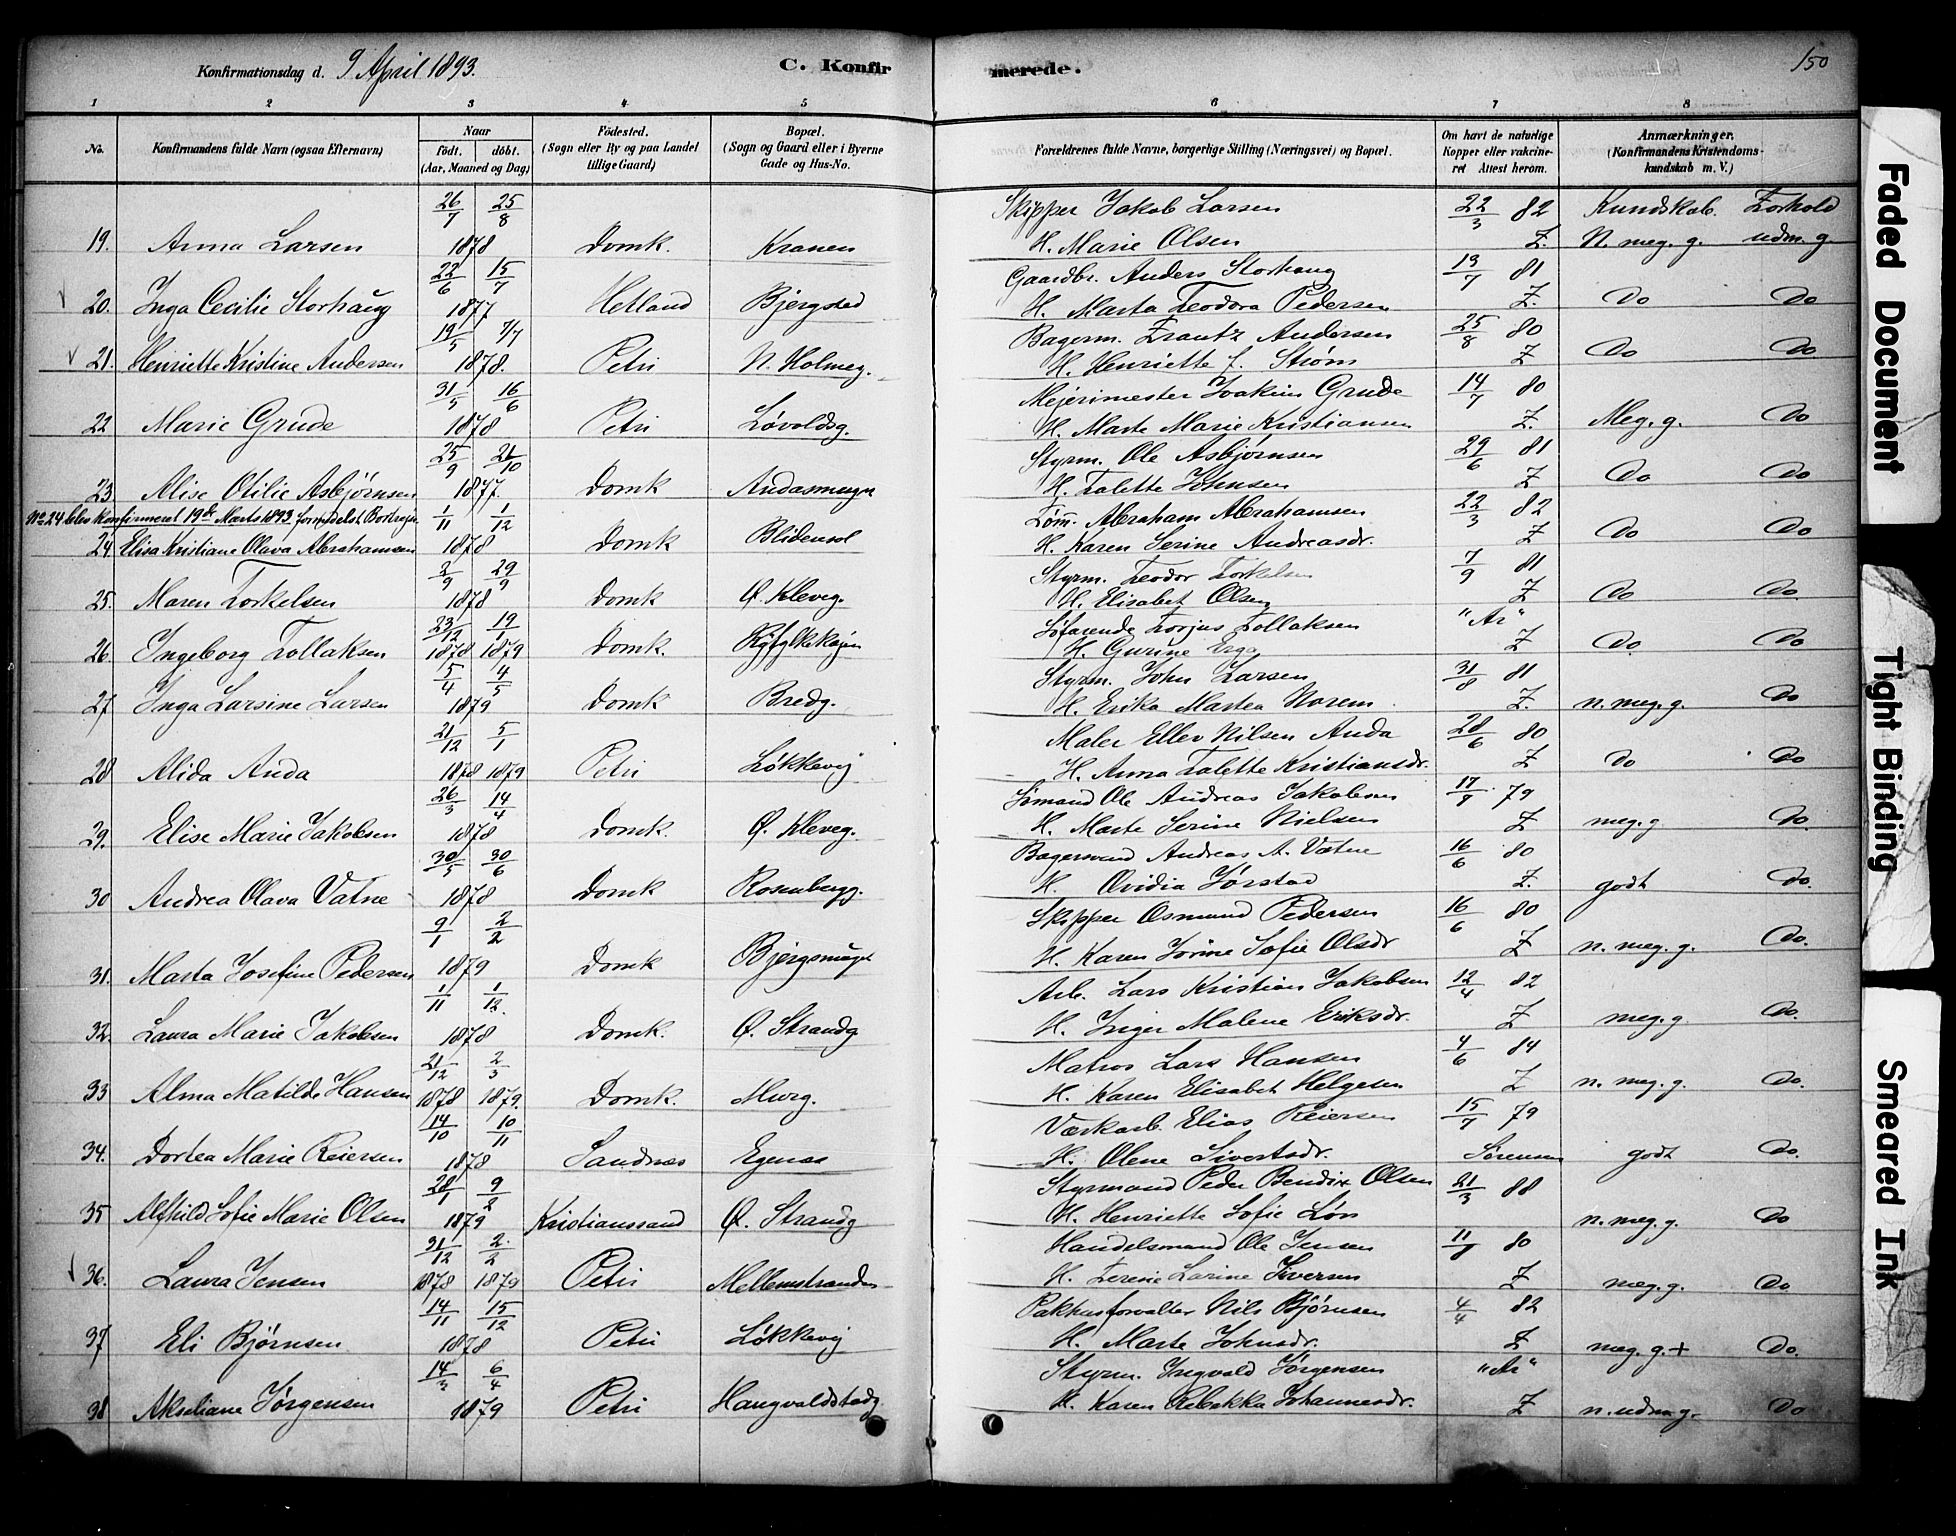 Konfirmationsdag d. 9 April 1893.
C. Konfirmerede.
150
1 2 3 4 5 6 7 8
No.
Konfirmandens fulde Navn (ogsaa Efternavn)
Naar
født. døbt.
(Aar, Maaned og Dag)
Fødested.
(Sogn eller By og paa Landet
tillige Gaard)
Bopæl.
(Sogn og Gaard eller i Byerne
Gade og Hus-No.
Forældrenes fulde Navne, borgerlige Stilling (Næringsvei) og Bopæl.
Om havt de naturlige
Kopper eller vakcine-
ret Attest herom.
Anmærkninger.
(Konfirmandens Kristendoms-
kundskab m. V.)
26/7 25/8 Skipper Jakob Larsen 22/3 82 Kundskab. Forhold
19. Anna Larsen 1878 Domk. Kranen H. Marie Olsen Z. N. meg. g. udm. g.
22/6 15/7 Gaardbr. Anders Storhaug 13/7 81
20. Inga Cecilie Storhaug 1877 Hetland Bjergsted H. Marta Teodora Pedersen Z. Do Do
19/5 7/7 Bagerm. Frantz Andersen 25/8 80
21. Henriette Kristine Andersen 1878. Petri N. Holmeg. H. Henriette f. Strøm Z Do Do
31/5 16/6 Mejerimester Joakim Grude 14/7 80
22 Marie Grude 1878 Petri Løvoldsg. H. Marte Marie Kristiansen Z. Meg. g. Do
25/9 21/10 Styrm. Ole Asbjørnsen 29/6 81
23. Alise Otilie Asbjørnsen 1877. Domk Andasmuget H. Talette Johnsen Z Do Do
No 24 blev konfirmeret 19de Marts 1893 formedelst Bortrejse 1/11 1/12 Tøm. Abraham Abrahamsen 22/3 82
24 Elisa Kristiane Olava Abrahamsen 1878 Domk Blidensol H. Karen Serine Andreasdr. Z Do Do
2/9 29/9 Styrm. Teodor Torkelsen 7/9 81
25. Maren Torkelsen 1878 Domk Ø. Kleveg. H. Elisabet Olsen Z Do Do
23/12 19/1 Søfarende Torjus Tollaksen "Ar"
26 Ingeborg Tollaksen 1878 1879 Domk. Ryfylkekajen H. Gurine Z Do Do
5/4 4/5 Styrm. John Larsen 31/8 81
27 Inga Larsine Larsen 1879 Domk Bredg. H. Erika Martea Norem Z. n. meg. g. Do
21/12 5/1 Maler Ellev Nilsen Auda 28/6 80
28 Alida Auda 1878 1879 Petri Løkkevej H. Anna Talette Kristiansdr. Z Do Do
26/3 14/4 Sømand Ole Andreas Jakobsen 17/9 79
29. Elise Marie Jakobsen 1878 Domk. Ø. Kleveg. H. Marte Serine Nielsen Z meg. g Do.
30/5 30/6 Bagersvend Andreas A. Vatne 16/6 80
30 Andrea Olava Vatne 1878 Domk Rosenbergg. H. Ovidia Jørstad Z. godt Do.
9/1 2/2 Skipper Osmund Pedersen 16/6 80
31. Marta Josefine Pedersen 1879 Domk Bjergsmuget H. Karen Jorine Sofie Olsdr Z n. meg. g. Do.
1/11 1/12. Arb. Lars Kristian Jakobsen 12/4 82
32. Laura Marie Jakobsen 1878 Domk. Ø. Strandg H. Inger Malene Eriksdr. Z meg. g. Do.
21/12 2/3 Matros Lars Hansen 4/6 84
33 Alma Matilde Hansen 1878 1879. Domk. Murg. H. Karen Elisabet Helgesen Z n. meg. g. Do.
14/10 10/11 Værkarb. Elias Reiersen 15/7 79
34. Dortea Marie Reiersen 1878 Sandnæs Egenæs H. Olene Sivertsdr. Sørensen godt Do.
28/1 9/2 Styrmand Peder Bendix Olsen 21/3 88
35 Alfhild Sofie Marie Olsen 1879 Kristianssand Ø. Strandg H. Henriette Sofie n. meg. g. Do
31/12 2/2 Handelsmand Ole Jensen 11/9 80
36. Laura Jensen 1878 1879 Petri Mellemstranden H. Serine Larine Iversen Z meg. g. Do
14/11 15/12 Pakhusforvalter Nils Bjørnsen 4/4 82
37 Eli Bjørnsen 1878 Petri Løkkevej H. Marte Johnsdr. Z meg. g. + Do.
14/3 6/4 Styrm. Ingvald Jørgensen "Ar"
38 Akseliane Jørgensen 1879 Petri Haugvaldstadg. H. Karen Rebekka Johannesdr. Z n. udm. g. Do
Faded Document
Tight Binding
Smeared Ink